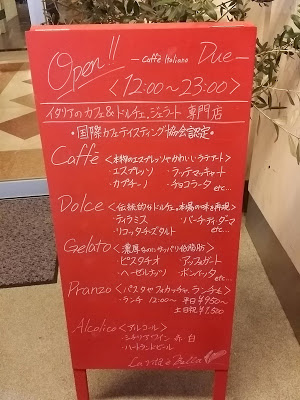 Open!!
— Caffè Italiano Due —
<12:00~23:00>
イタリアのカフェ&ドルチェ、ジェラート専門店
・国際カフェテイスティング協会認定・
Caffè <本物のエスプレッソやかわいいラテアート>
・エスプレッソ ・ラッテマッキャート
・カプチーノ ・チョコラータ
etc...
Dolce <伝統的なドルチェ、本場の味を再現>
・ティラミス ・バーチディダーマ
・リコッタチーズタルト etc...
Gelato <濃厚なのにサッパリ低脂肪>
・ピスタチオ ・アッフォガート
・ヘーゼルナッツ ・ボンベッタ
etc...
Pranzo <パスタやフォカッチャ、ランチも>
・ランチ 12:00~ 平日¥950~
土日祝¥1,500
Alcolico <アルコール>
・シチリアワイン 赤 白
・ハートランドビール
La vita è bella